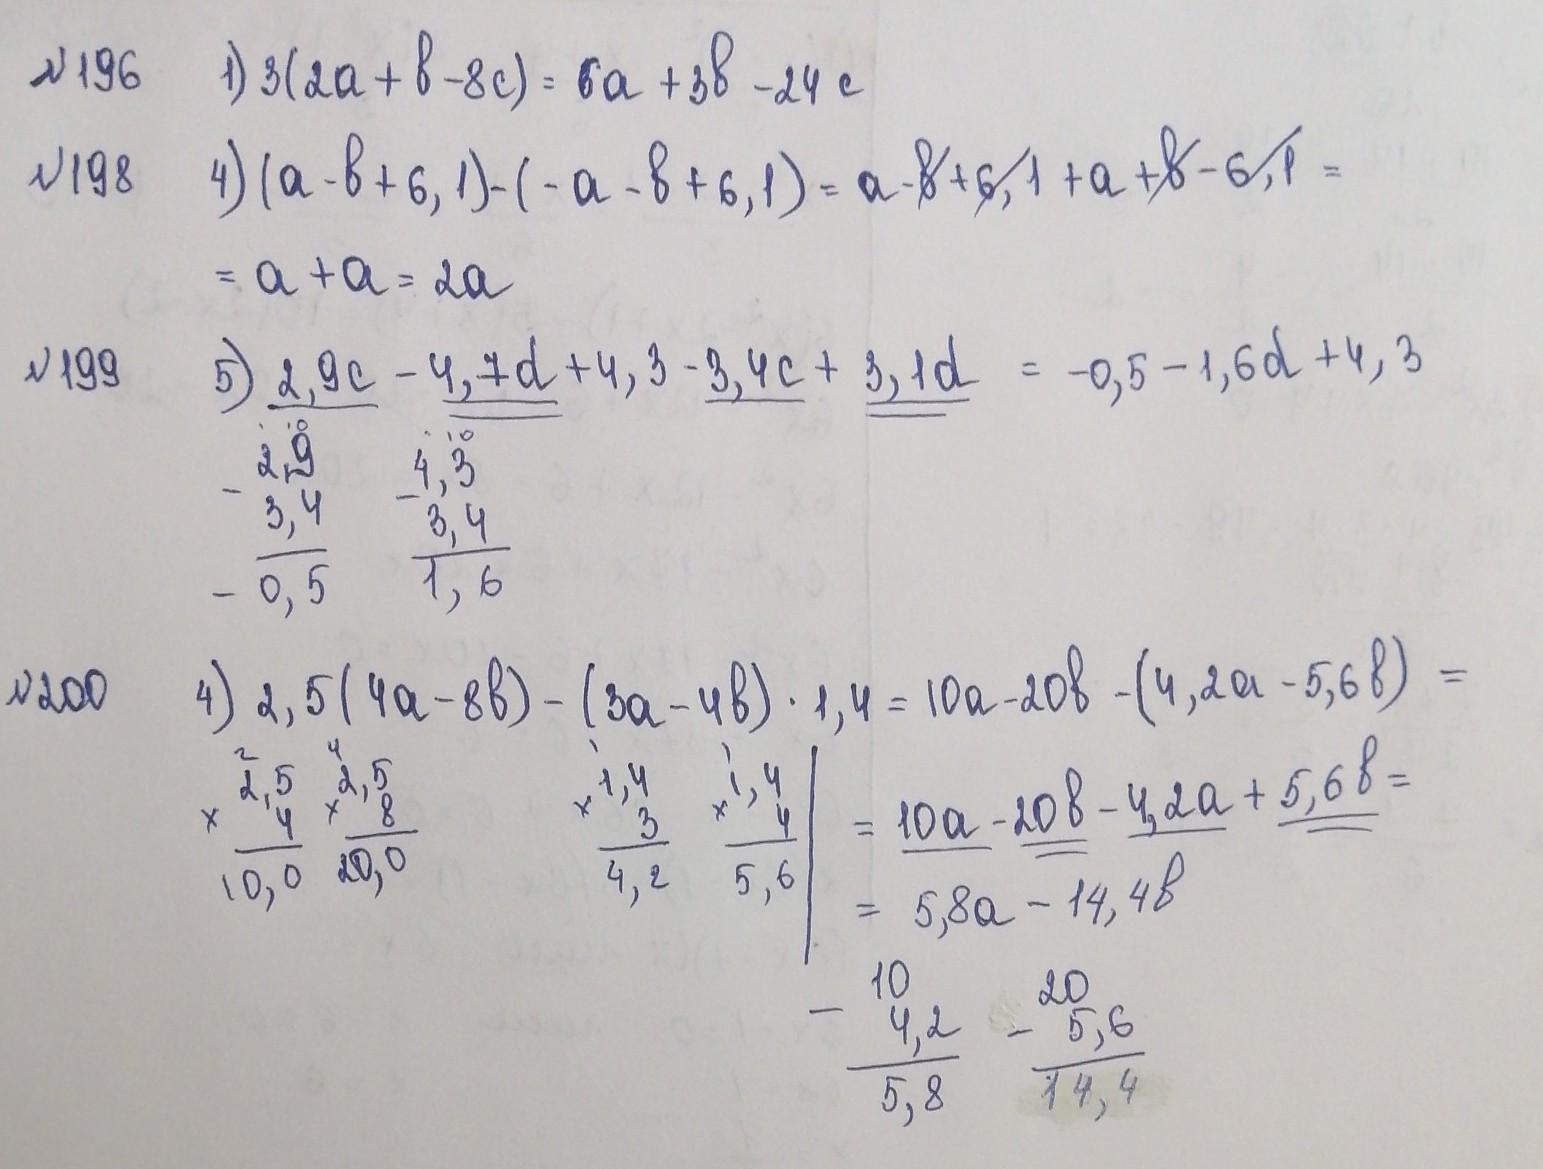 №196 1) 3(2a + b - 8c) = 6a + 3b - 24c
№198 4) (a - b + 6,1) - (-a - b + 6,1) = a - b + 6,1 + a + b - 6,1 =
= a + a = 2a
№199 5) 2,9c - 4,7d + 4,3 - 3,4c + 3,1d = -0,5 - 1,6d + 4,3
10 10
2,9 4,3
- 3,4 - 3,4
- 0,5 1,6
№200 4) 2,5(4a - 8b) - (3a - 4b) · 1,4 = 10a - 20b - (4,2a - 5,6b) =
2 4 1 1
2,5 2,5 1,4 1,4
× 4 × 8 × 3 × 4
10,0 20,0 4,2 5,6
= 10a - 20b - 4,2a + 5,6b =
= 5,8a - 14,4b
10 20
- 4,2 - 5,6
5,8 14,4